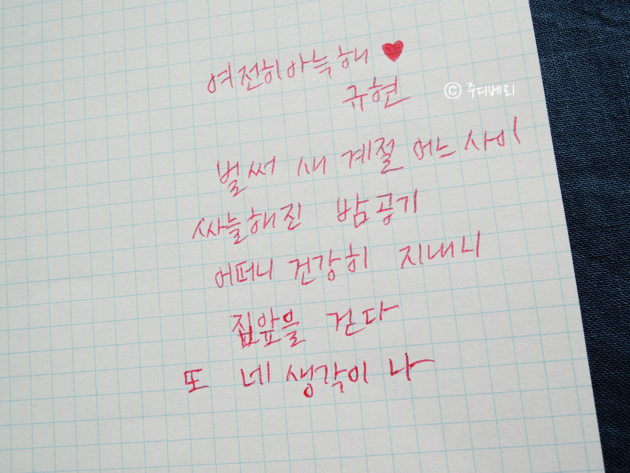 여전히 아늑해 ♥
규현
© 주디베리
벌써 새 계절 어느 사이
싸늘해진 밤공기
어떠니 건강히 지내니
집앞을 걷다
또 네 생각이 나